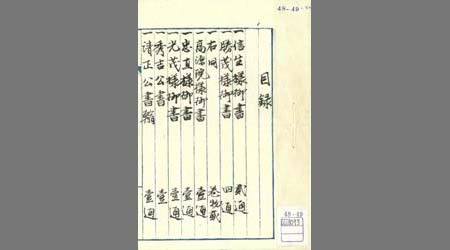 48-49-
目録
一信生様御書 貳通
一勝茂様御書 四通
一右同 巻物貳
一高源院様御書 壹通
一忠直様御書 壹通
一光茂様御書 壹通
一秀吉公書 壹
一清正公書翰 壹通
48-49